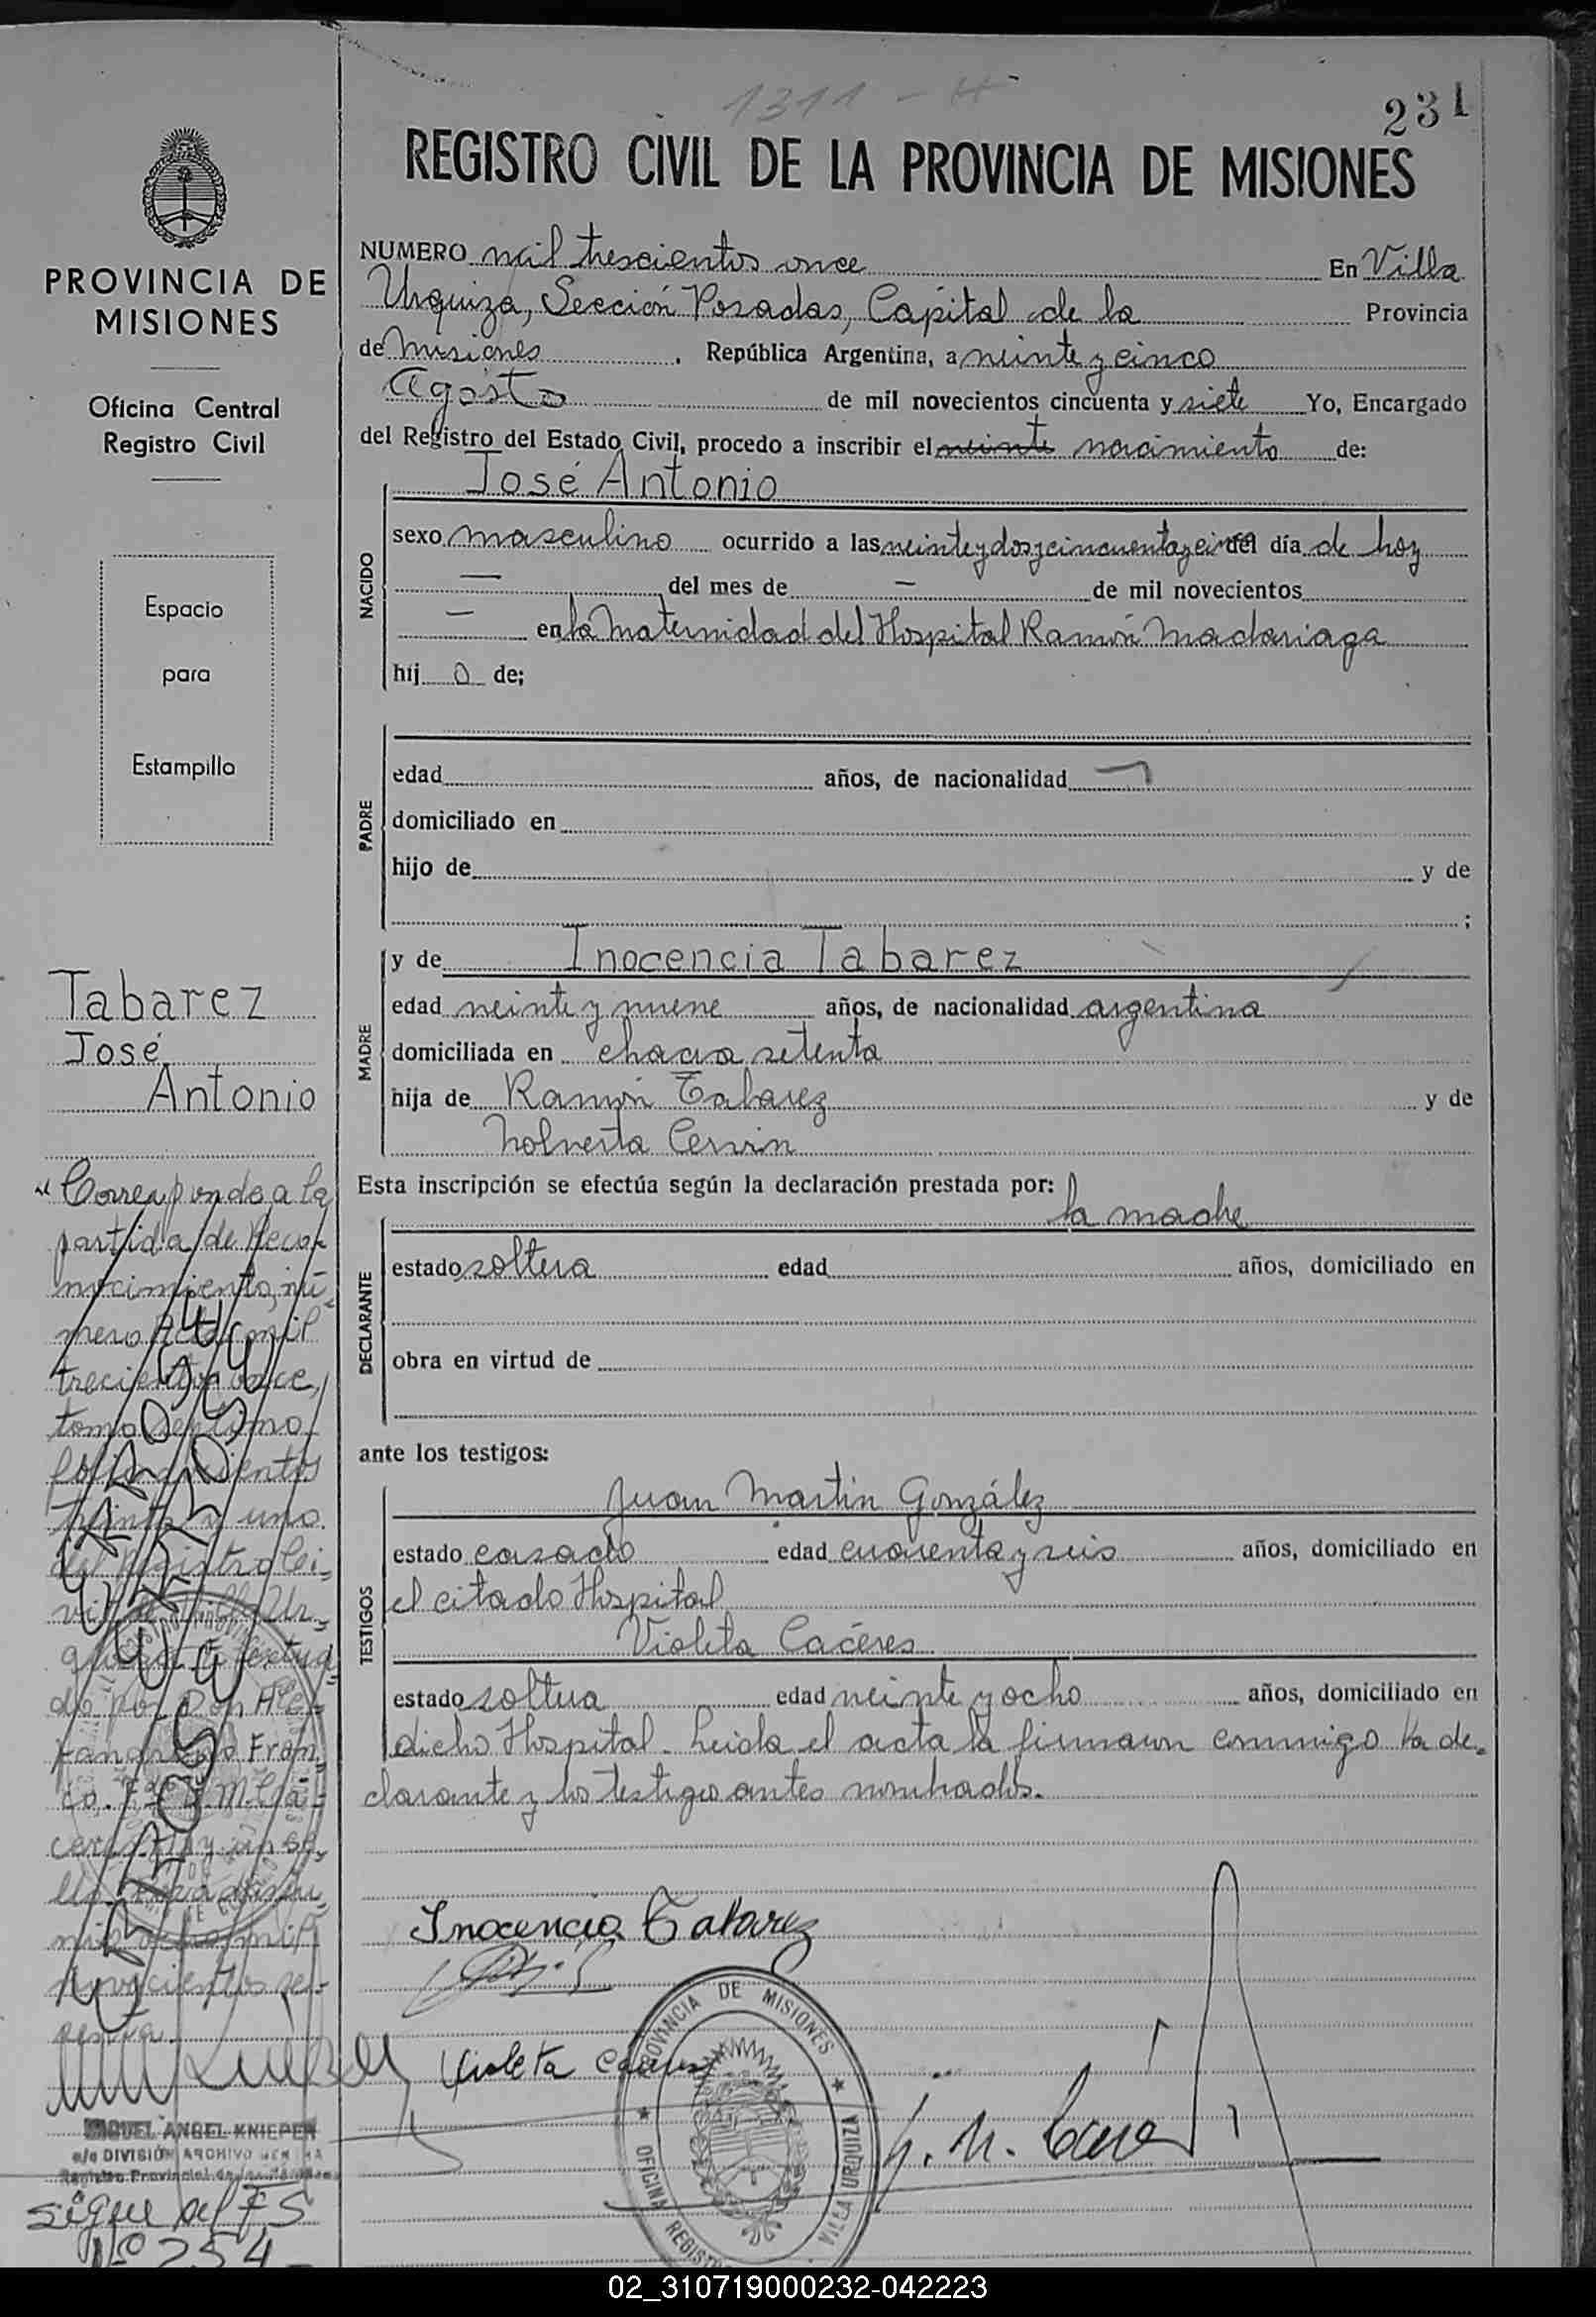 1311 - H
231
REGISTRO CIVIL DE LA PROVINCIA DE MISIONES
PROVINCIA DE
MISIONES
Oficina Central
Registro Civil
Espacio
para
Estampilla
NUMERO mil trescientos once En Villa
Urquiza, Sección Posadas, Capital de la Provincia
de Misiones, República Argentina, a veinte y cinco
Agosto de mil novecientos cincuenta y siete Yo, Encargado
del Registro del Estado Civil, procedo a inscribir el veinte nacimiento de:
José Antonio
NACIDO
sexo masculino ocurrido a las veinte y dos y cincuenta y cinco del día de hoy
— del mes de — de mil novecientos
— en la Maternidad del Hospital Ramón Madariaga
hij o de;
PADRE
edad años, de nacionalidad
domiciliado en
hijo de y de
;
MADRE
y de Inocencia Tabarez
edad veinte y nueve años, de nacionalidad argentina
domiciliada en chacra setenta
hija de Ramón Tabarez y de
Nolverta Cervin
Tabarez
José
Antonio
Esta inscripción se efectúa según la declaración prestada por:
la madre
DECLARANTE
estado soltera edad años, domiciliado en
obra en virtud de
ante los testigos:
TESTIGOS
Juan Martin González
estado casado edad cuarenta y seis años, domiciliado en
el citado Hospital
Violeta Cacéres
estado soltera edad veinte y ocho años, domiciliado en
dicho Hospital. Leida el acta la firmaron conmigo la de-
clarante y los testigos antes nombrados.
"Corresponde a la
partida de Reco-
nocimiento, nú-
mero Acta mil
trecientos once,
tomo septimo
folio doscientos
treinta y uno
del Registro Ci-
vil de Villa Ur-
quiza
Inocencia Tabarez
Violeta Caceres
PROVINCIA DE MISIONES
OFICINA REGISTRO
VILLA URQUIZA
MIGUEL ANGEL KNIEPER
a/c DIVISIÓN ARCHIVO
Registro Provincial de las
Sigue al FS
Nº 254
02_310719000232-042223